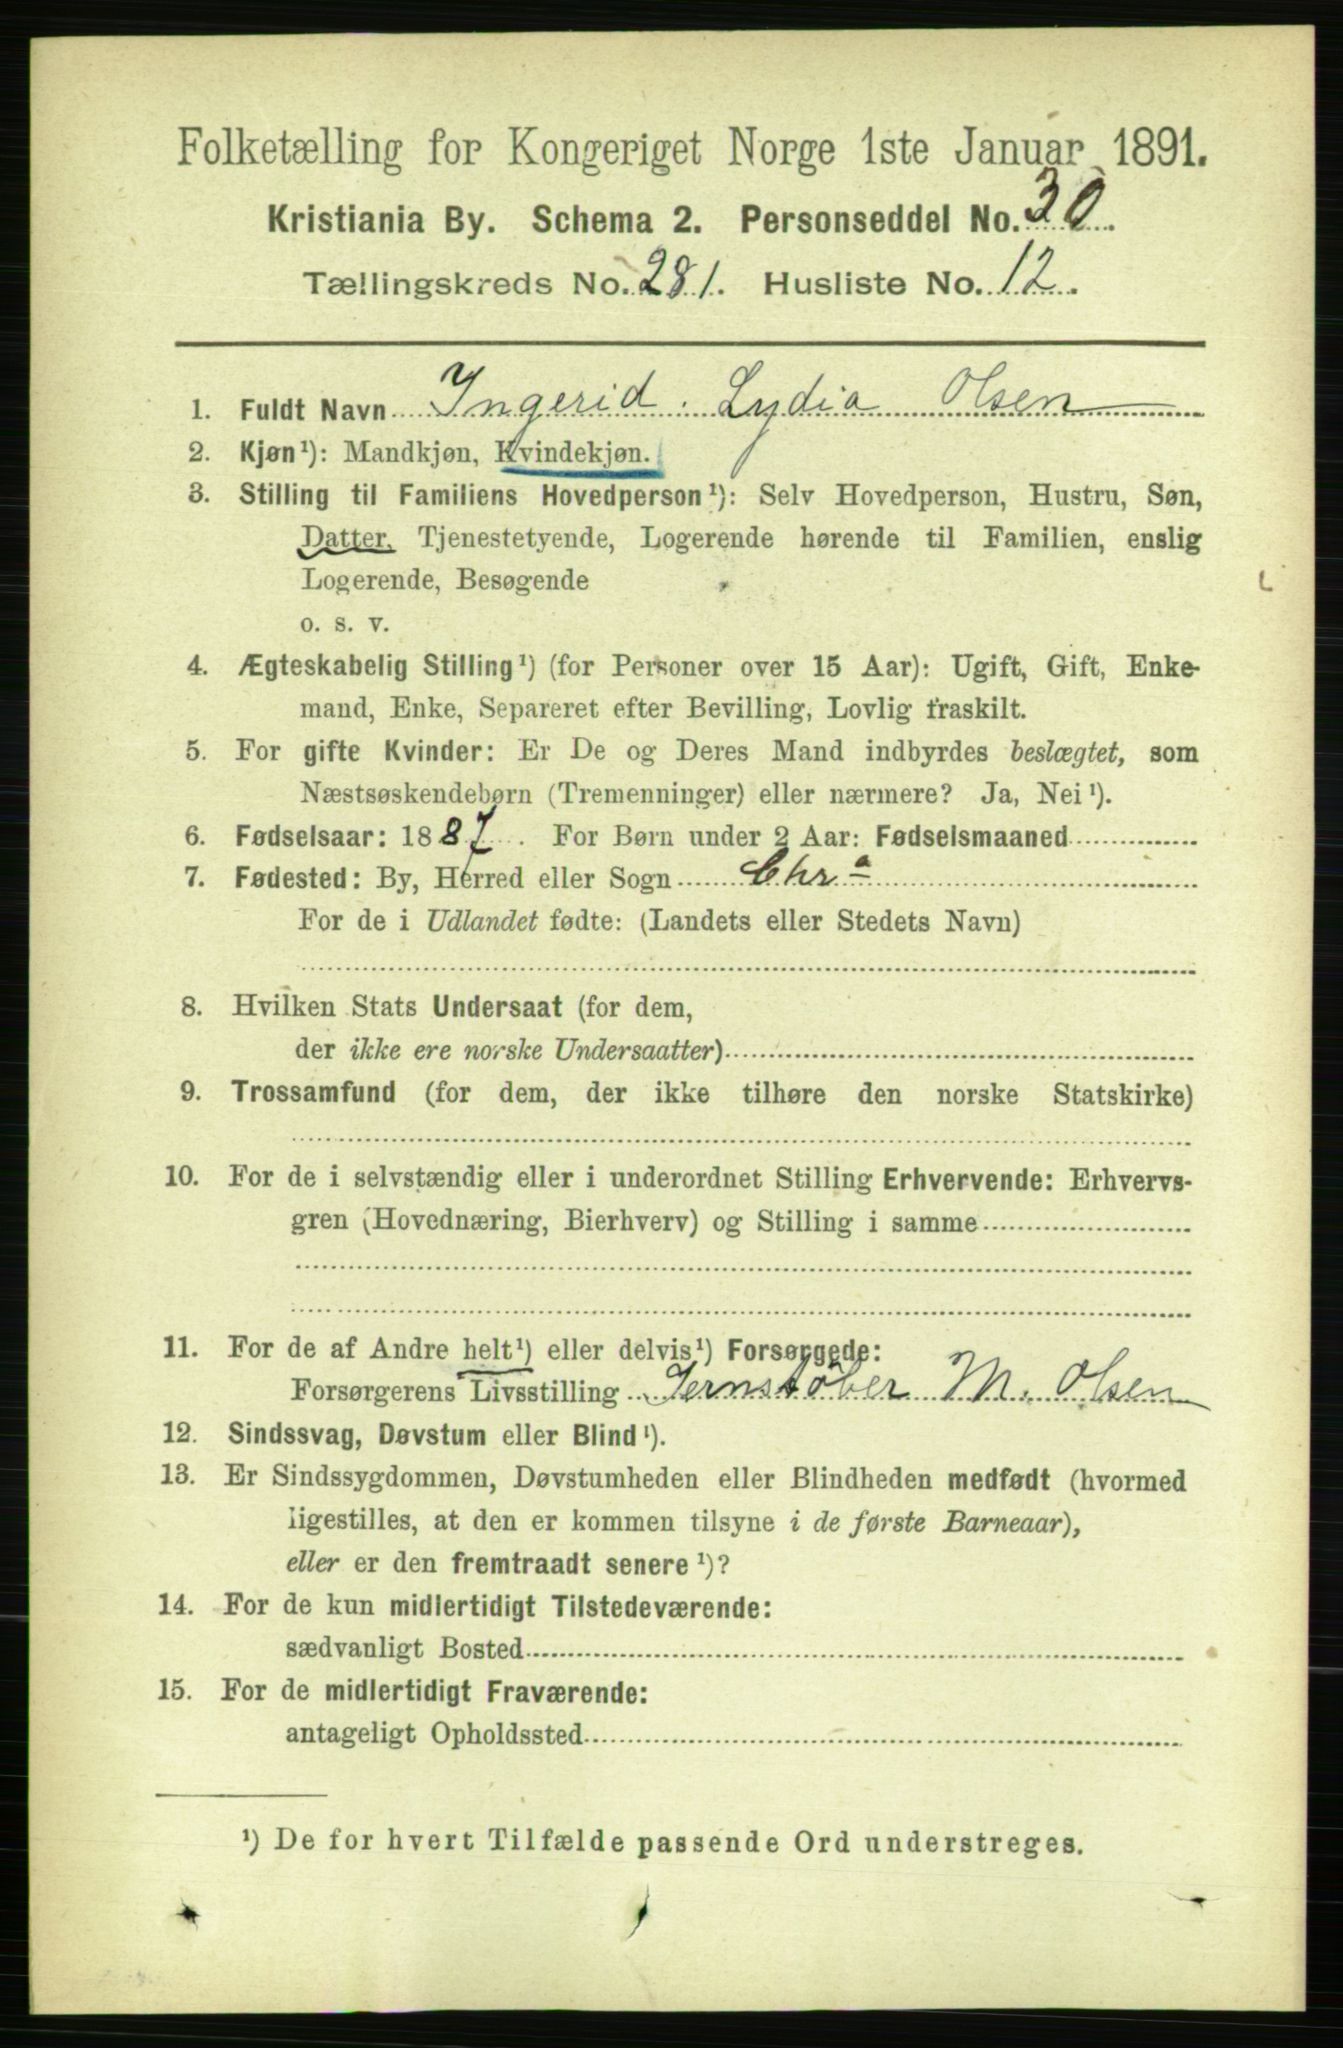 Folketælling for Kongeriget Norge 1ste Januar 1891.
Kristiania By. Schema 2. Personseddel No. 30.
Tællingskreds No. 281. Husliste No. 12.
1. Fuldt Navn Ingerid Lydia Olsen
2. Kjøn¹): Mandkjøn, Kvindekjøn.
3. Stilling til Familiens Hovedperson¹): Selv Hovedperson, Hustru, Søn,
Datter, Tjenestetyende, Logerende hørende til Familien, enslig
Logerende, Besøgende
o. s. v.
4. Ægteskabelig Stilling¹) (for Personer over 15 Aar): Ugift, Gift, Enke-
mand, Enke, Separeret efter Bevilling, Lovlig fraskilt.
5. For gifte Kvinder: Er De og Deres Mand indbyrdes beslægtet, som
Næstsøskendebørn (Tremenninger) eller nærmere? Ja, Nei¹).
6. Fødselsaar: 1887. For Børn under 2 Aar: Fødselsmaaned
7. Fødested: By, Herred eller Sogn Chrª
For de i Udlandet fødte: (Landets eller Stedets Navn)
8. Hvilken Stats Undersaat (for dem,
der ikke ere norske Undersaatter)
9. Trossamfund (for dem, der ikke tilhøre den norske Statskirke)
10. For de i selvstændig eller i underordnet Stilling Erhvervende: Erhvervs-
gren (Hovednæring, Bierhverv) og Stilling i samme
11. For de af Andre helt¹) eller delvis¹) Forsørgede:
Forsørgerens Livsstilling Jernstøber M. Olsen
12. Sindssvag, Døvstum eller Blind¹).
13. Er Sindssygdommen, Døvstumheden eller Blindheden medfødt (hvormed
ligestilles, at den er kommen tilsyne i de første Barneaar),
eller er den fremtraadt senere¹)?
14. For de kun midlertidigt Tilstedeværende:
sædvanligt Bosted
15. For de midlertidigt Fraværende:
antageligt Opholdssted
¹) De for hvert Tilfælde passende Ord understreges.